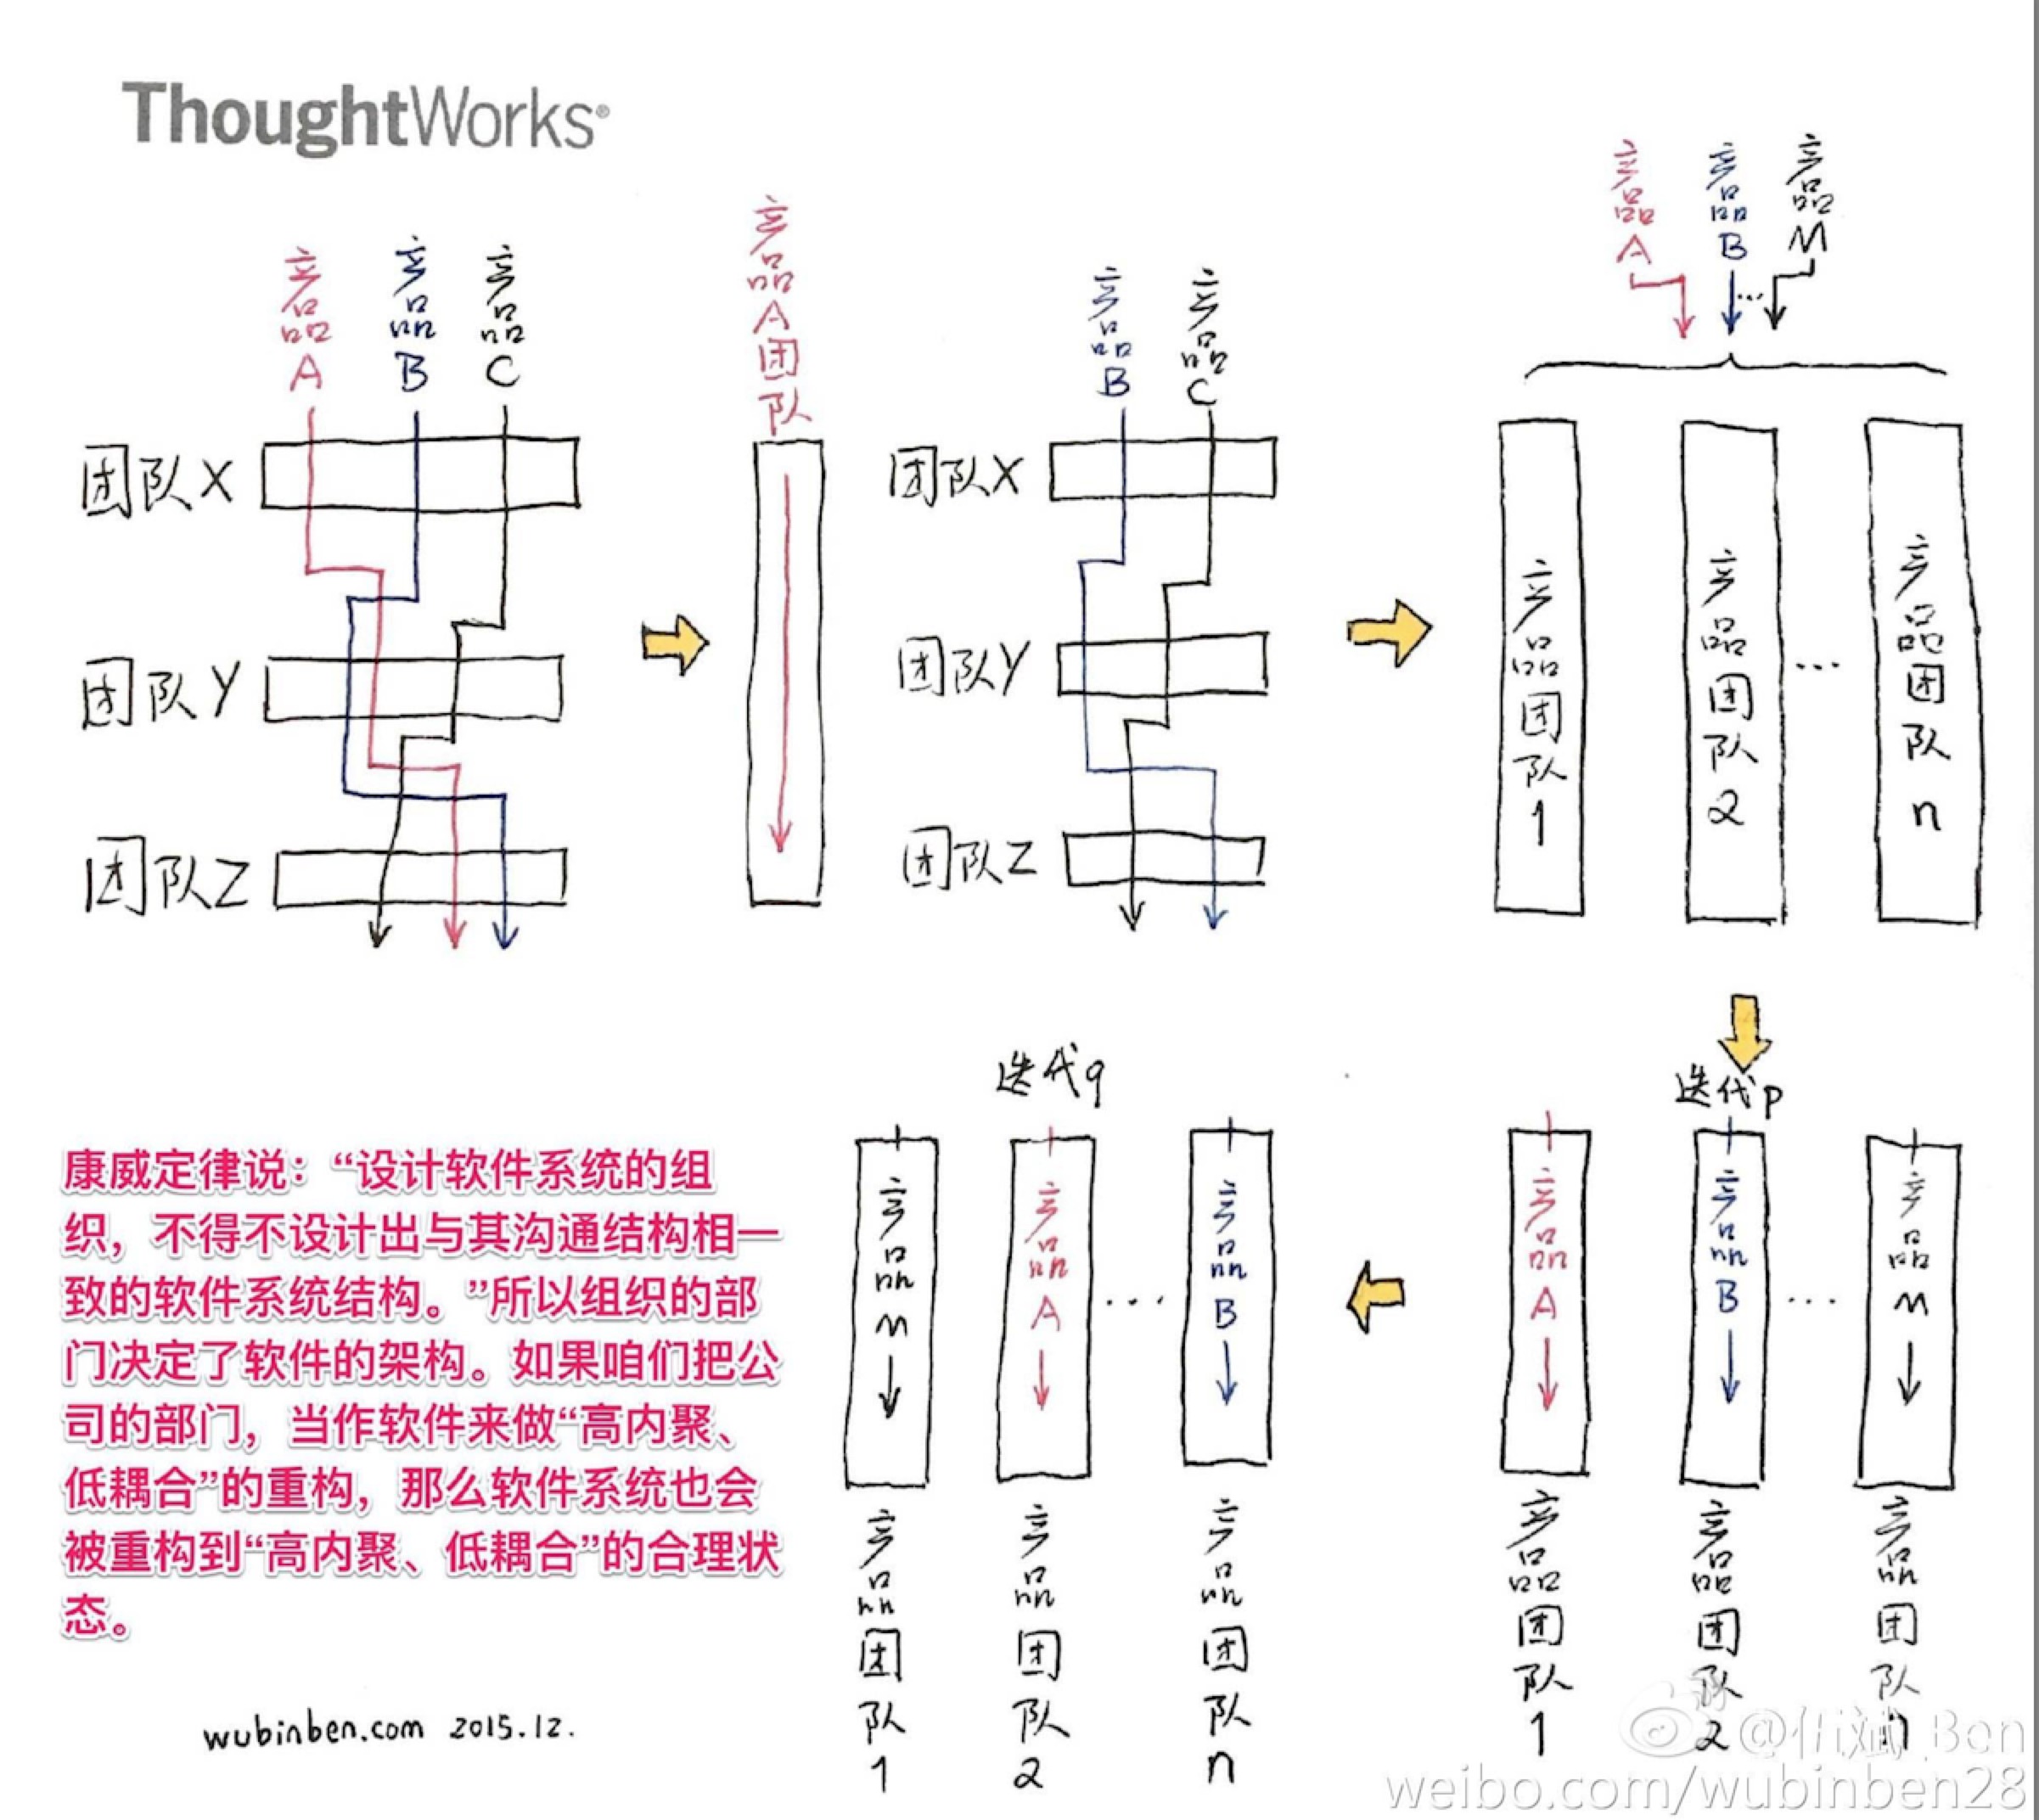 ThoughtWorks®
产品A
产品B
产品C
团队X
团队Y
团队Z
产品A团队
产品B
产品C
团队X
团队Y
团队Z
产品A
产品B
...
产品M
产品团队1
产品团队2
...
产品团队n
迭代p
产品A
产品B
...
产品M
产品团队1
产品团队2
产品团队n
迭代q
产品M
产品A
...
产品B
产品团队1
产品团队2
产品团队n
康威定律说：“设计软件系统的组
织，不得不设计出与其沟通结构相一
致的软件系统结构。”所以组织的部
门决定了软件的架构。如果咱们把公
司的部门，当作软件来做“高内聚、
低耦合”的重构，那么软件系统也会
被重构到“高内聚、低耦合”的合理状
态。
wubinben.com 2015.12.
@伍斌_Ben
weibo.com/wubinben28